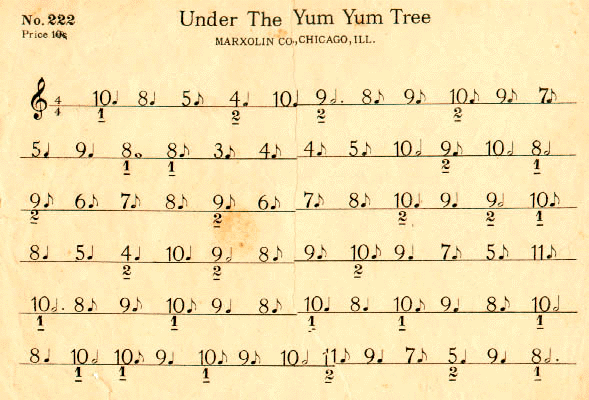 No. 222
Under The Yum Yum Tree
Price 10¢
MARXOLIN CO., CHICAGO, ILL.
4/4 10♩ 8♩ 5♪ 4♩ 10♩ 9𝅗𝅥. 8♪ 9♪ 10♪ 9♪ 7♪
1 2 2 2
5♩ 9♩ 8𝅝 8♪ 3♪ 4♪ 4♪ 5♪ 10𝅗𝅥 9♪ 10𝅗𝅥 8𝅗𝅥
1 1 2 1
9♪ 6♪ 7♪ 8♪ 9♪ 6♪ 7♪ 8♪ 10𝅗𝅥 9♩ 9𝅗𝅥 10♪
2 2 2 2 1
8♩ 5♩ 4♩ 10♩ 9𝅗𝅥 8♪ 9♪ 10♪ 9♩ 7♪ 5♪ 11♪
2 2 2
10𝅗𝅥. 8♪ 9♪ 10♪ 9♩ 8♪ 10♩ 8♩ 10♪ 9♩ 8♪ 10𝅗𝅥
1 1 1 1 1
8♩ 10𝅗𝅥 10♪ 9♩ 10♪ 9♪ 10𝅗𝅥 11♪ 9♩ 7♪ 5♩ 9♩ 8𝅗𝅥.
1 1 1 2 2 1